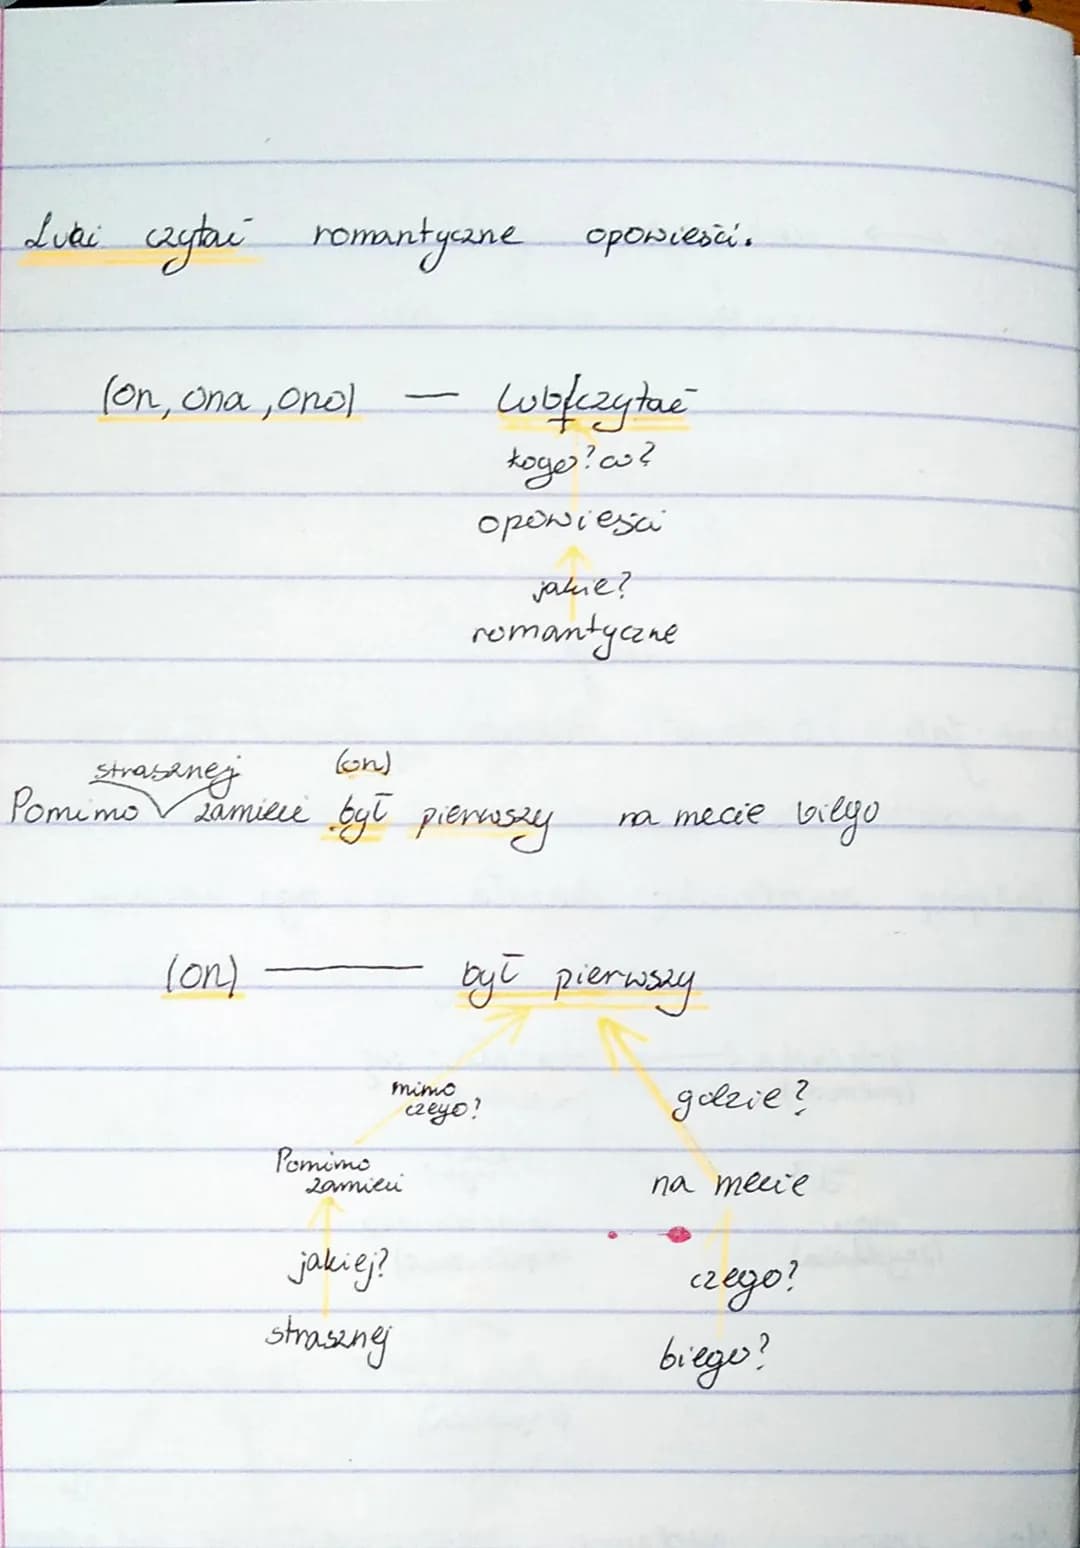 Lubi czytać romantyczne opowieści.
(on, ona, ono) — lubi czytać
kogo? co?
opowieści
jakie?
romantyczne
strasznej (on)
Pomimo zamieci był pierwszy na mecie biegu
(on) — był pierwszy
mimo czego? gdzie?
Pomimo zamieci na mecie
jakiej? czego?
strasznej biegu?